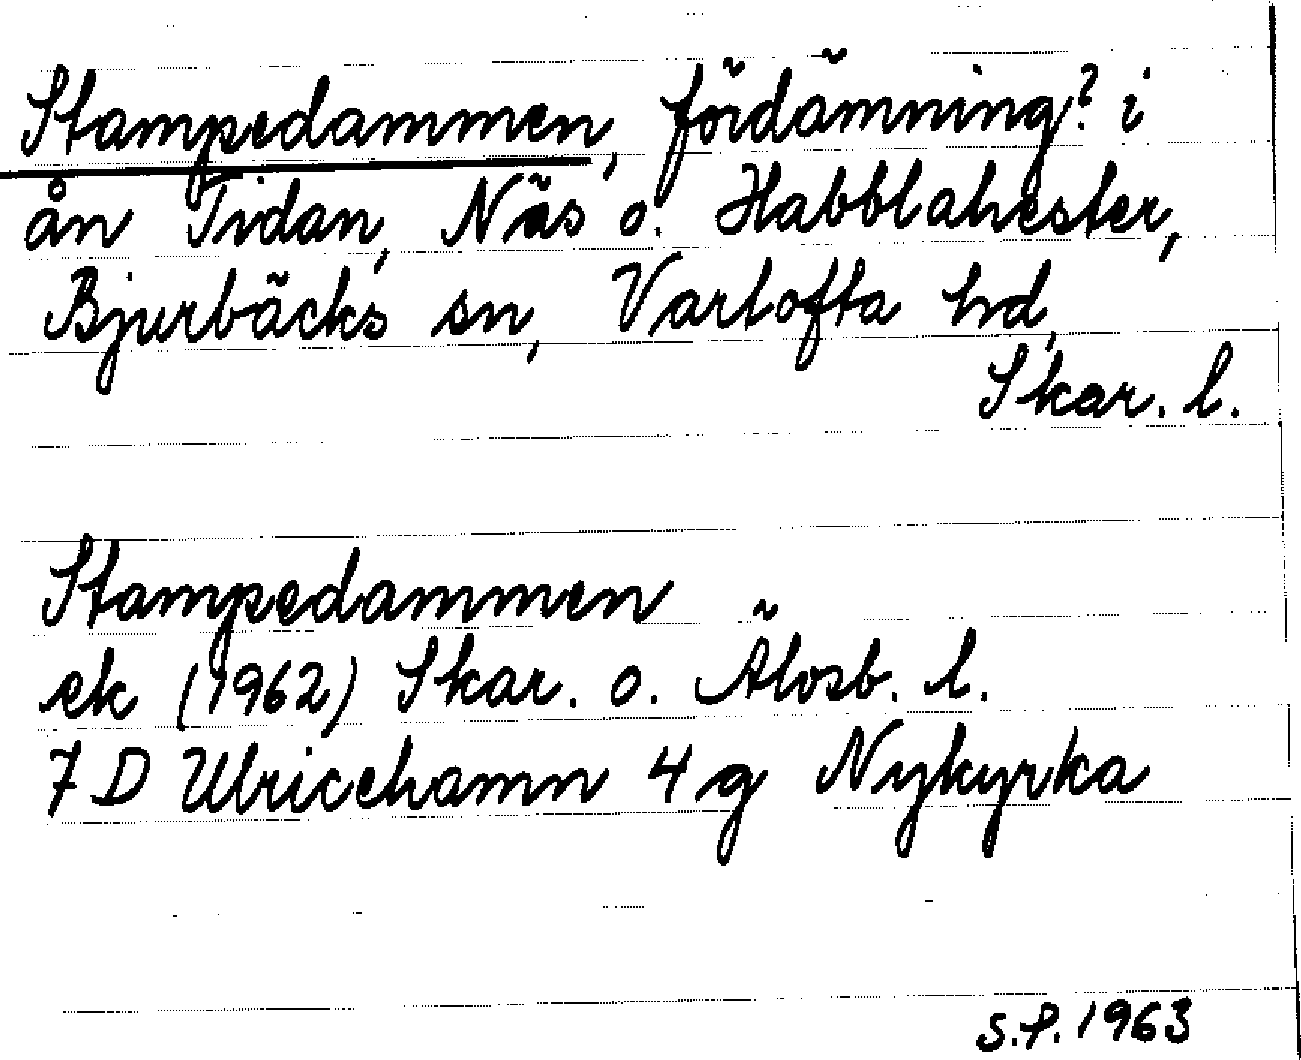 Stampedammen, fördämning? i
ån Tidan, Näs o. Habblahester,
Bjurbäcks sn, Vartofta hd,
Skar. l.
Stampedammen
ek (1962) Skar. o. Älvsb. l.
7 D Ulricehamn 4 g Nykyrka
S.P. 1963